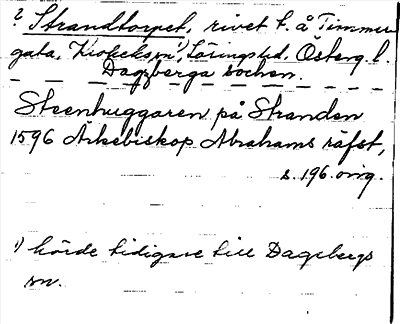 ? Strandtorpet, rivet t. å Timmer-
gata, Krokeks sn¹⁾, Lösings hd, Österg. l.
Dagsberga socken.
Steenhuggaren på Stranden
1596 Ärkebiskop Abrahams räfst,
s. 196. orig.
¹⁾ hörde tidigare till Dagsbergs
sn.